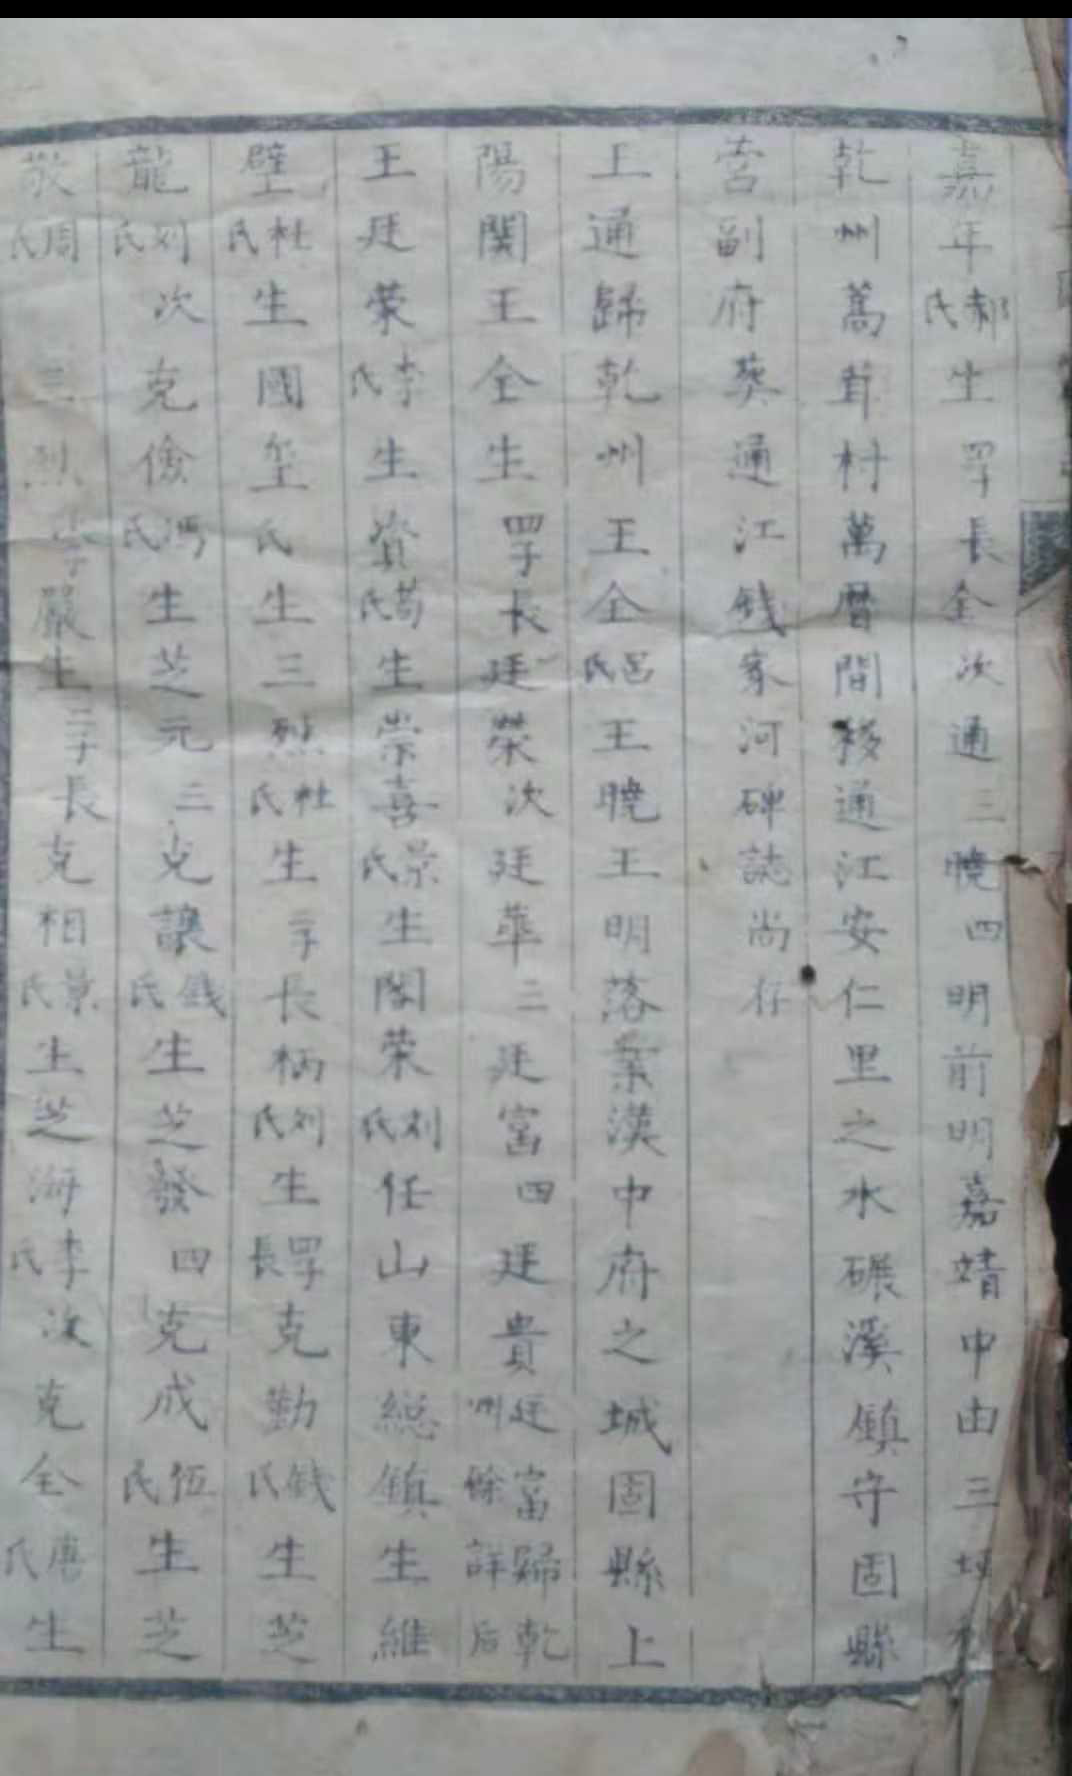 嘉年郝氏生四子長全次通三曉四明前明嘉靖中由三
乾州蒿茸村萬曆間移通江安仁里之水碾溪鎮守固縣
营副府葵通江錢家河碑誌尚存
上通歸乾州王全呂氏王曉王明落業漢中府之城固縣上
陽関王全生四子長廷榮次廷華三廷富四廷貴廷州富歸乾餘詳后
王廷荣李氏生資苟氏生崇喜景氏生閣荣刘氏任山東總鎮生維
壁杜氏生國玺氏生三烈杜氏生二子長柄刘氏生四子長克勤錢氏生芝
龍刘氏次克儉馮氏生芝元三克讓錢氏生芝發四克成伍氏生芝
敬周氏三烈子嚴生三子長克相景氏生芝海李氏次克全唐氏生